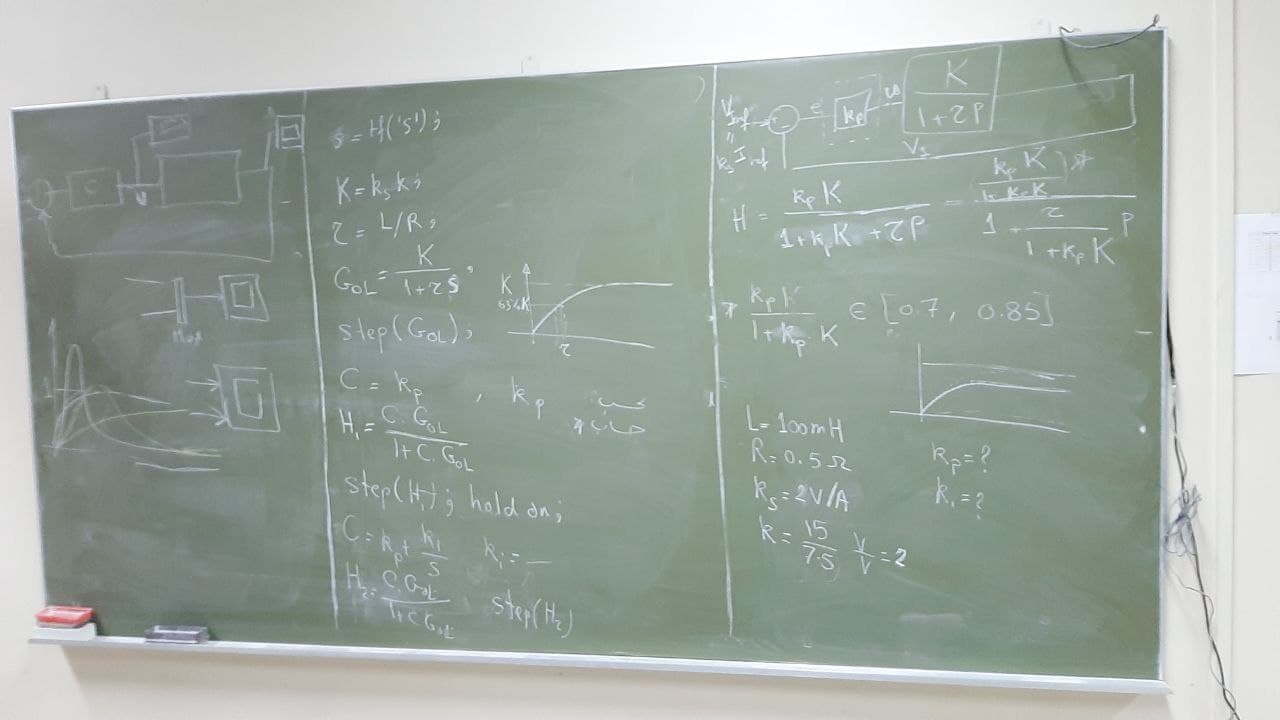 C
u
Mux
1
s = tf('s');
K = ks k;
τ = L/R;
GOL = K/(1+τS);
K
63%K
τ
step(GOL);
C = kp , kp
حساب *
H1 = C.GOL/(1+C.GOL)
step(H1); hold on;
C = kp + ki/s ki = __
H2 = C.GOL/(1+C GOL) step(H2)
ε kp K/(1+τP)
Vs
ks Iref
H = kp K/(1+kp K + τP) = (kp K/(1+kp K))*/(1 + τ/(1+kp K) P)
* kp K/(1+kp K) ∈ [0.7, 0.85]
L = 100mH
R = 0.5 Ω
ks = 2V/A
k = 15/7.5 V/V = 2
kp = ?
ki = ?